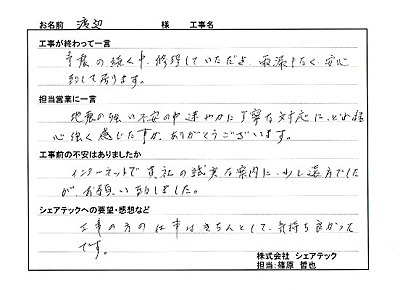 お名前 渡辺 様 工事名
工事が終わって一言
余震の続く中、修理していただき 雨漏りもなく、安心
致しております。
担当営業に一言
地震の強い不安の中 速やかに丁寧な対応に、どれ程
心強く感じた事か、ありがとうございます。
工事前の不安はありましたか
インターネットで貴社の誠実な案内に、少し遠方でした
が、お願い致しました。
シェアテックへの要望・感想など
工事の方の仕事はきちんとして、気持ち良かった
です。
株式会社 シェアテック
担当：篠原 哲也